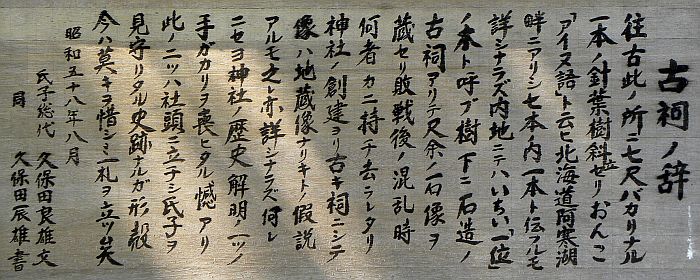 古祠ノ辞
往古此ノ所ニ七尺バカリナル
一本ノ針葉樹斜立セリおんこ
「アイヌ語」ト云ヒ北海道阿寒湖
畔ニアリシ七本ノ内一本ト伝フルモ
詳シナラズ内地ニテハいちい「一位」
ノ木ト呼ブ樹下ニ石造ノ
古祠アリテ尺余ノ一石像ヲ
蔵セリ敗戦後ノ混乱時
何者カニ持チ去ラレタリ
神社ノ創建ヨリ古キ祠ニシテ
像ハ地蔵像ナリキトノ假説
アルモ之レ亦詳シナラズ何レ
ニセヨ神社ノ歴史解明ノ一ツノ
手ガカリヲ喪ヒタル憾アリ
此ノ二ツハ社頭ニ立チシ氏子ヲ
見守リタル史跡ナルガ形骸
今ハ莫キヲ惜シミ一札ヲ立ツ矣
昭和五十八年八月
氏子総代 久保田良雄文
同 久保田辰雄書